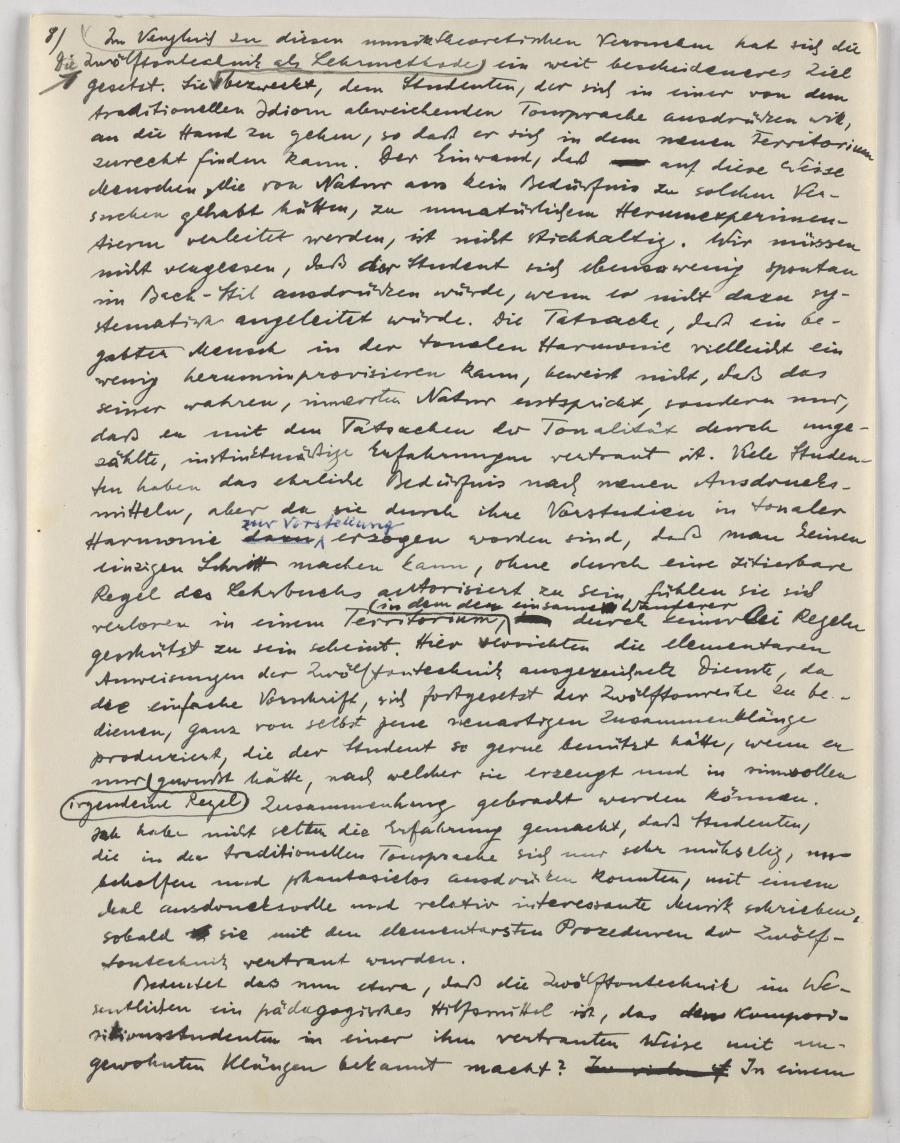 8/ (Im Vergleich zu diesen musiktheoretischen Versuchen hat sich die
Die Zwölftontechnik als Lehrmethode) ein weit bescheideneres Ziel
gesetzt. Sie bezweckt, dem Studenten, der sich in einer von dem
traditionellen Idiom abweichenden Tonsprache ausdrücken will,
an die Hand zu gehen, so daß er sich in dem neuen Territorium
zurecht finden kann. Der Einwand, daß auf diese Weise
Menschen, die von Natur aus kein Bedürfnis zu solchen Ver-
suchen gehabt hätten, zu unnatürlichem Herumexperimen-
tieren verleitet werden, ist nicht stichhaltig. Wir müssen
nicht vergessen, daß der Student sich ebensowenig spontan
im Bach-Stil ausdrücken würde, wenn er nicht dazu sy-
stematisch angeleitet würde. Die Tatsache, daß ein be-
gabter Mensch in der tonalen Harmonie vielleicht ein
wenig herumimprovisieren kann, beweist nicht, daß das
seiner wahren, innersten Natur entspricht, sondern nur,
daß er mit den Tatsachen der Tonalität durch unge-
zählte, instinktmäßige Erfahrungen vertraut ist. Viele Studen-
ten haben das ehrliche Bedürfnis nach neuen Ausdrucks-
mitteln, aber da sie durch ihre Vorstudien in tonaler
zur Vorstellung
Harmonie dazu erzogen worden sind, daß man keinen
einzigen Schritt machen kann, ohne durch eine zitierbare
Regel des Lehrbuchs autorisiert zu sein, fühlen sie sich
in dem der einsame Wanderer
verloren in einem Territorium, durch keinerlei Regeln
geschützt zu sein scheint. Hier verrichten die elementaren
Anweisungen der Zwölftontechnik ausgezeichnete Dienste, da
die einfache Vorschrift, sich fortgesetzt der Zwölftonreihe zu be-
dienen, ganz von selbst jene neuartigen Zusammenklänge
produziert, die der Student so gerne benützt hätte, wenn er
nur gewusst hätte, nach welcher sie erzeugt und in sinnvollen
irgendeine Regel Zusammenhang gebracht werden können.
Ich habe nicht selten die Erfahrung gemacht, daß Studenten,
die in der traditionellen Tonsprache sich nur sehr mühselig, un-
beholfen und phantasielos ausdrücken konnten, mit einem
Mal ausdrucksvolle und relativ interessante Musik schrieben,
sobald sie mit den elementarsten Prozeduren der Zwölf-
tontechnik vertraut wurden.
Bedeutet das nun etwa, daß die Zwölftontechnik im We-
sentlichen ein pädagogisches Hilfsmittel ist, das den Komposi-
tionsstudenten in einer ihm vertrauten Weise mit un-
gewohnten Klängen bekannt macht? In einem